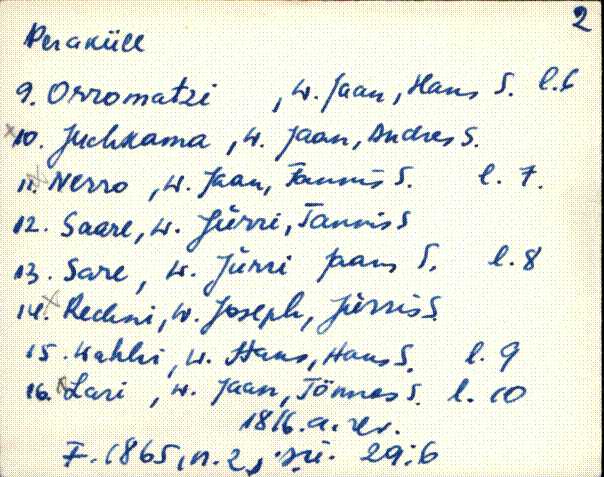 2
Peraküll
9. Orromatzi , w. Jaan, Hans S. l. 6
x 10. Juchkama , w. Jaan, Andres S.
11. x Nerro , w. Jaan, Tannis S. l. 7.
12. Saare, w. Jürri, Tannis S
13. Sare, w. Jürri Jaans S. l. 8
14. x Rechni, w. Joseph, Jürris S.
15. Kahhi, w. Hans, Hans S. l. 9
16. x Lari , w. Jaan, Tönnes S. l. 10
1816. a. rev.
F. 1865, n. 2, sü. 29:6